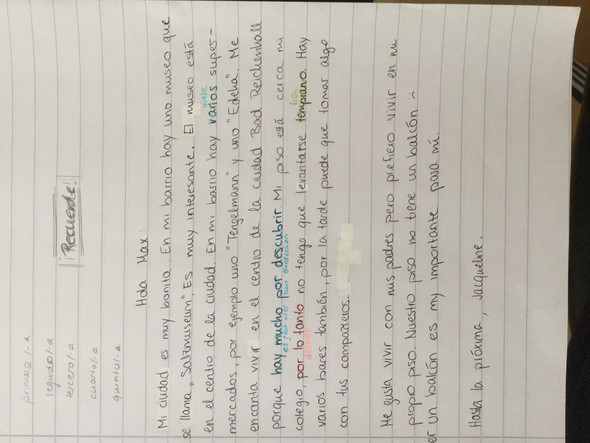 primero/-a
segundo/-a
tercero/-a
cuarto/-a
quinto/-a
¡Recuerde!
Hola Max:
Mi ciudad es muy bonita. En mi barrio hay uno museo que
se llama „Salzmuseum". Es muy interesante. El museo está
en el centro de la ciudad. En mi barrio hay varios super-
viele
mercados, por ejemplo uno "Tengelmann" y uno "Edeka". Me
encanta vivir en el centro de la ciudad Bad Reichenhall
porque hay mucho por descubrir. Mi piso está cerca mi
es gibt viel zum entdecken
früh
colegio, por lo tanto no tengo que levantarse temprano. Hay
deshalb
varios bares también, por la tarde puede que tomar algo
con tus compañeros.
Me gusta vivir con mis padres pero prefiero vivir en mi
propio piso. Nuestro piso no tiene un balcón :-
er un balcón es my importante para mí.
Hasta la próxima, Jacqueline.